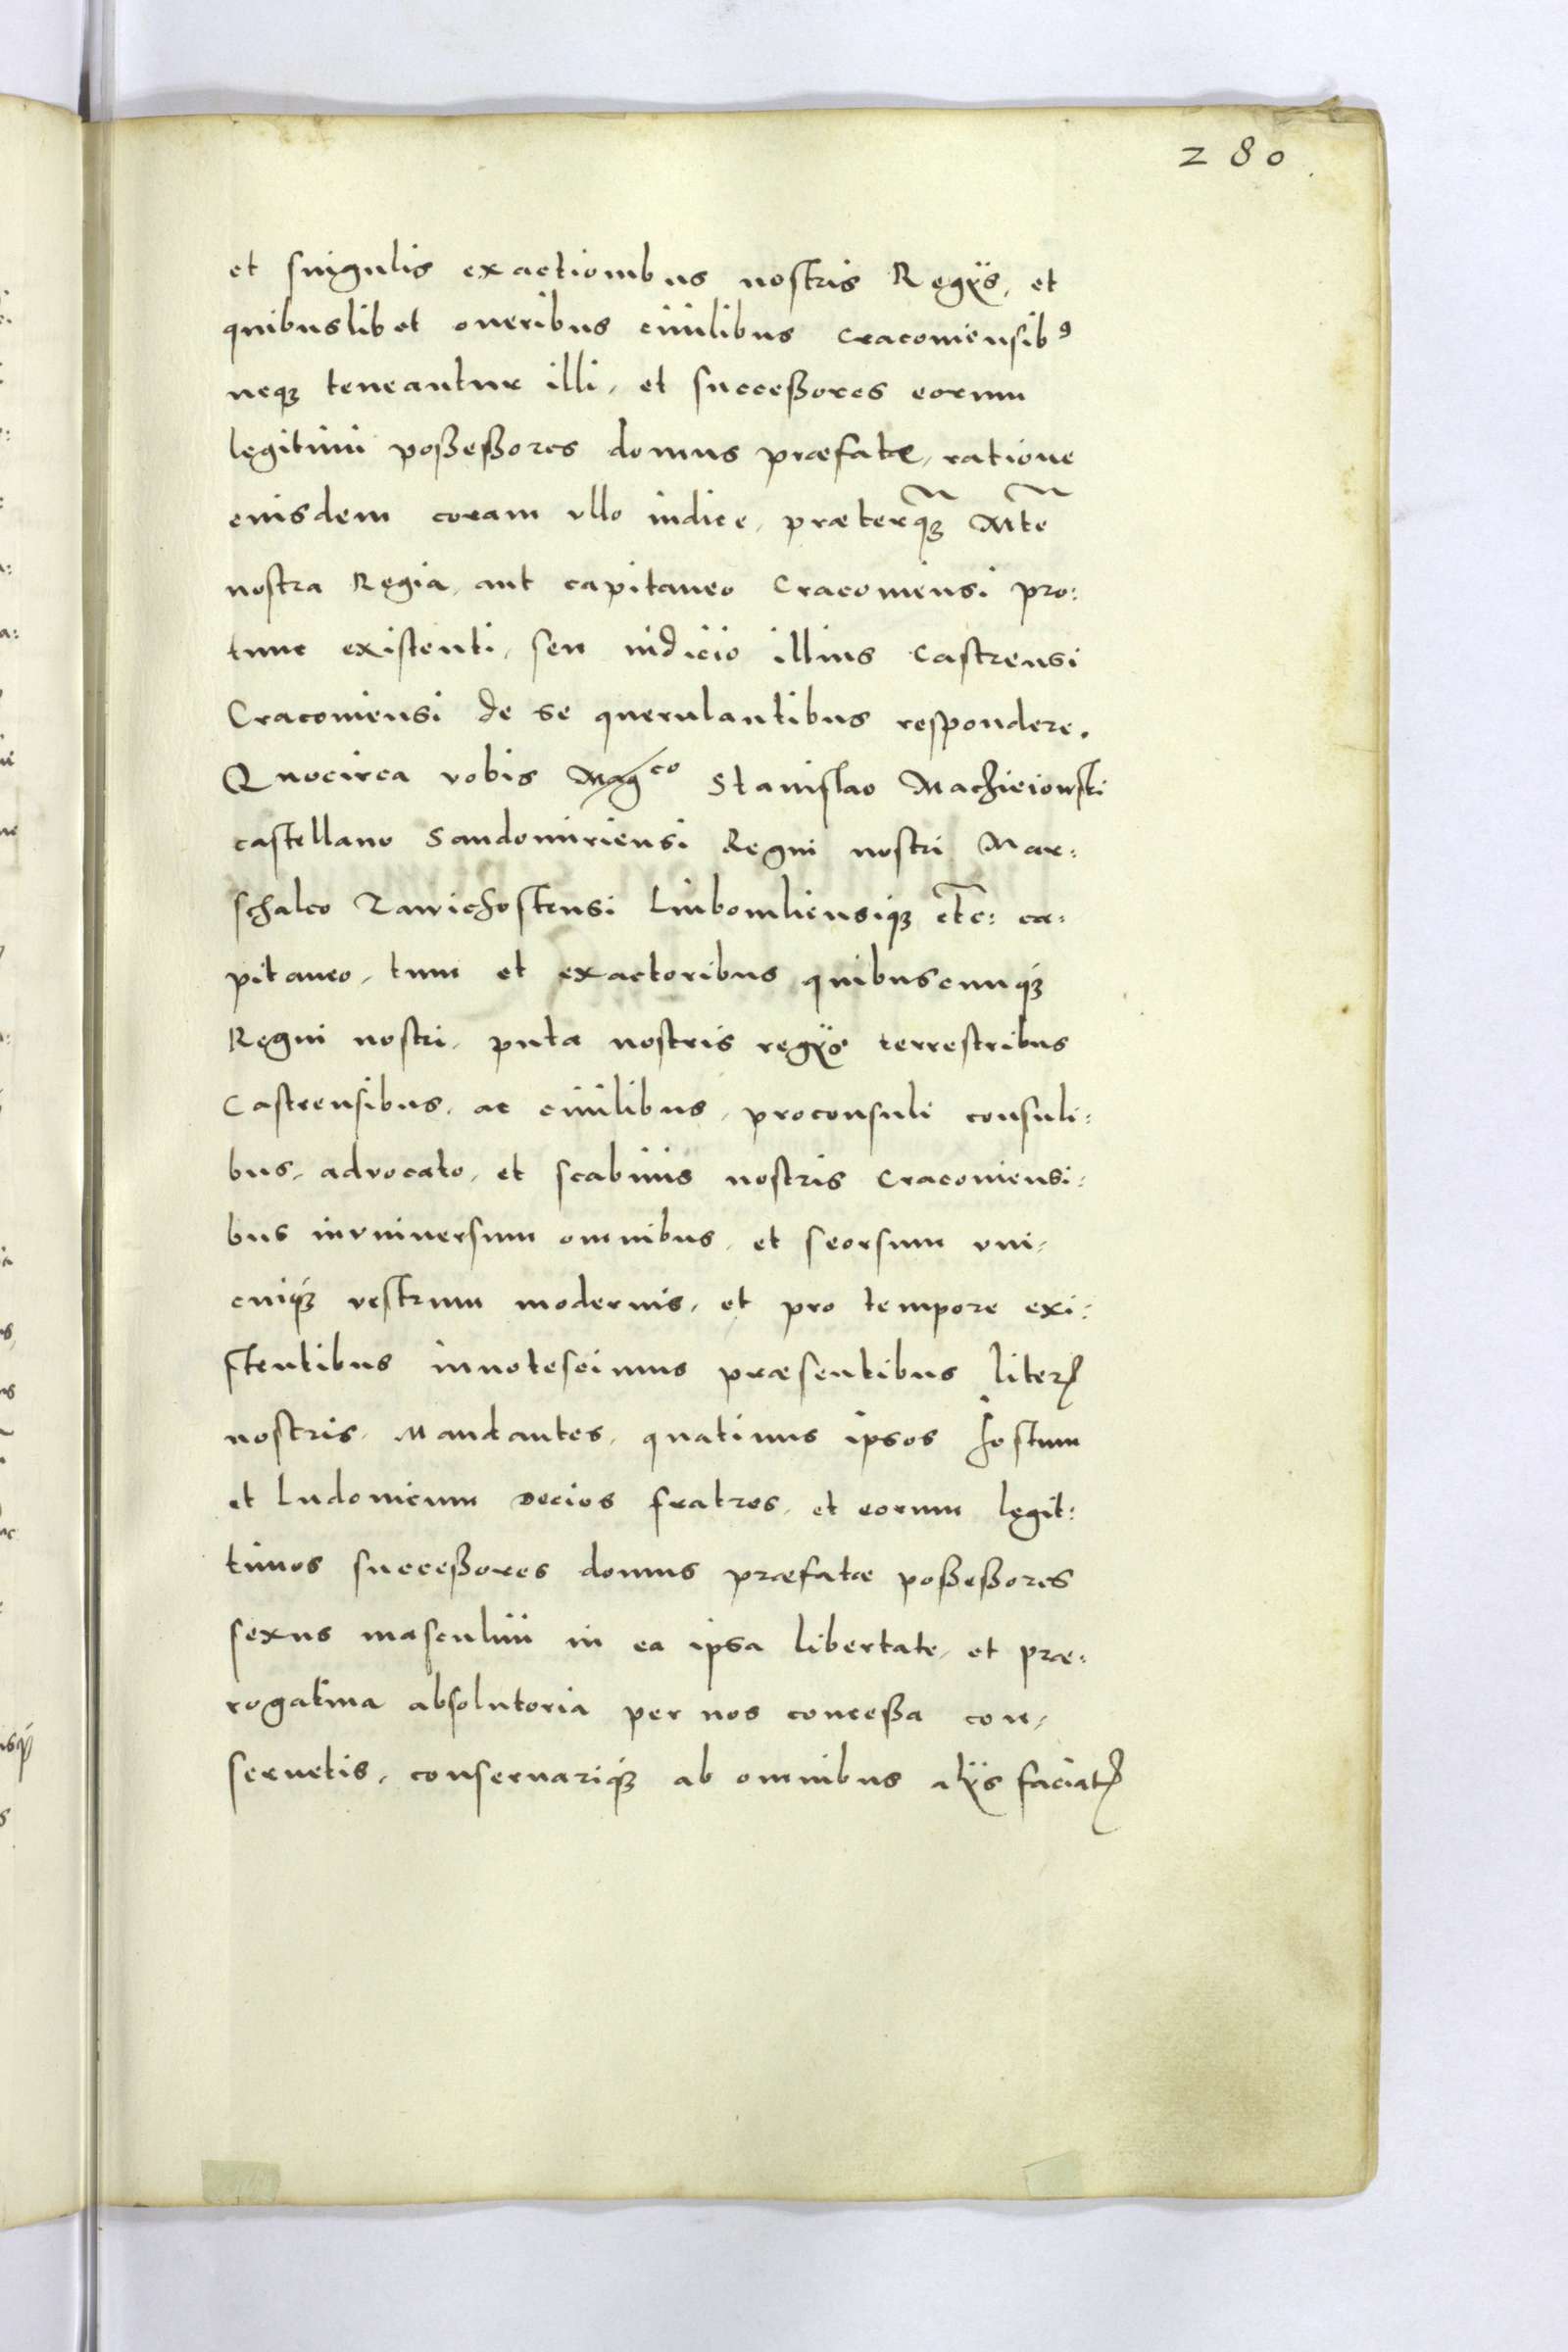 280
et singulis exactionibus nostris Regijs, et
quibuslibet oneribus ciuilibus Cracouiensib9
neqȝ teneantur illi, et succeßores eorum
legitimi poßeßores domus præfatæ, ratione
eiusdem coram vllo iudice, præterqȝ̃ Mte͂
nostra Regia, aut capitaneo Cracouiensi pro:
tunc existenti, seu iudicio illius Castrensi
Cracouiensi de se querulantibus respondere.
Quocirca vobis Magco Stanislao Machieiowski
castellano Sandomiriensi Regni nostri Mar:
schalco Zawichostensi Liubomliensiqȝ etc: ca:
pitaneo, tum et exactoribus quibuscunqȝ
Regni nostri, puta nostris regijs terrestribus
Castrensibus, ac ciuilibus, proconsuli consuli:
bus, advocato, et scabinis nostris Cracouiensi:
bus invniuersum omnibus, et seorsum vni:
cuiqȝ vestrum modernis, et pro tempore exi:
stentibus innotescimus præsentibus literꝭ
nostris, Mandantes, quatinus ipsos Iostum
et Ludouicum Decios fratres, et eorum legit:
timos succeßores domus præfatæ poßeßores
sexus masculini in ea ipsa libertate, et præ:
rogatiua absolutoria per nos conceßa con,
seruetis, conseruariqȝ ab omnibus alijs faciatꝭ